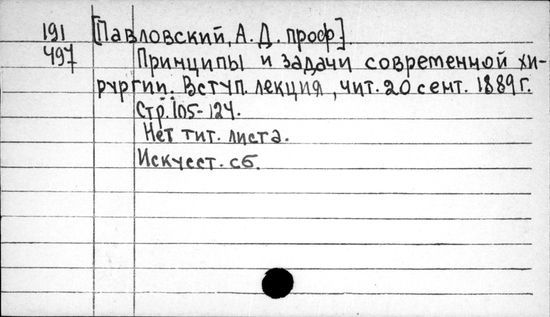 191 [Павловский, А. Д. проф].
497 Принципы и задачи современной хи-
рургии. Вступ. лекция, чит. 20 сент. 1889 г.
Стр. 105-124.
Нет тит. листа.
Искусст. сб.